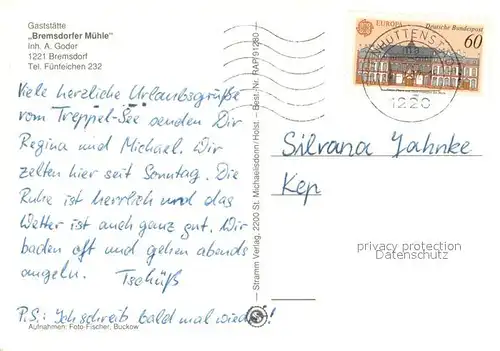 Gaststätte
„Bremsdorfer Mühle"
Inh. A. Goder
1221 Bremsdorf
Tel. Fünfeichen 232
Viele herzliche Urlaubsgrüße
vom Treppel-See senden Dir
Regina und Michael. Wir
zelten hier seit Sonntag. Die
Ruhe ist herrlich und das
Wetter ist auch ganz gut. Wir
baden oft und gehen abends
angeln. Tschüß
P.S.: Ich schreib bald mal wieder!
Aufnahmen: Foto-Fischer, Buckow
Stramm Verlag, 2200 St. Michaelisdonn/Holst. – Best.-Nr. RAP 91280
EUROPA Deutsche Bundespost
60
HÜTTENST
1220
Silvana Jahnke
Kep
privacy protection
Datenschutz